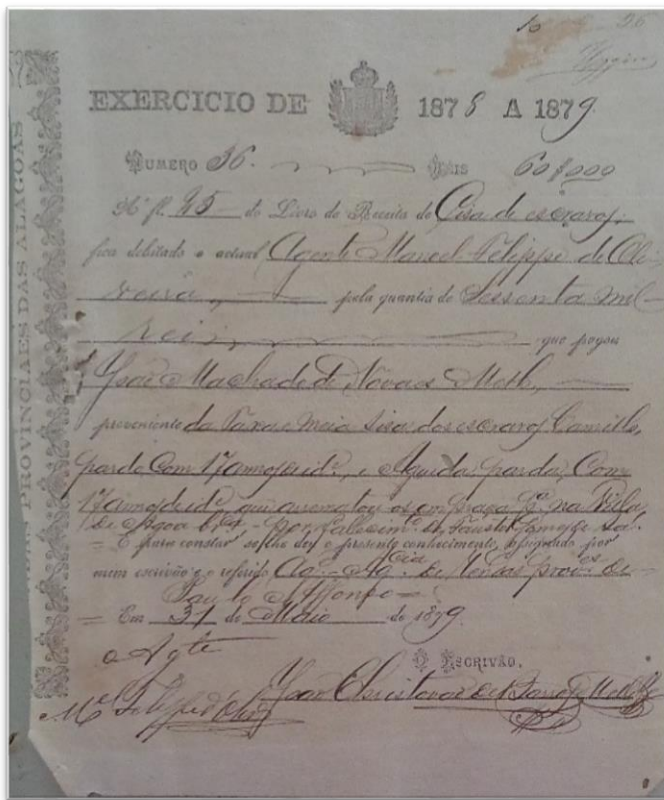 EXERCICIO DE 1878 A 1879
NUMERO 36. REIS 60$000
A fl. 25 do Livro de Receita de Cisa de escravos
fica debitado o actual Agente Manoel Felippe de Oli-
veira, pela quantia de Sessenta mil
reis, que pagou
João Machado de Novaes Mello,
proveniente da Taxa e meia sisa dos escravos Camillo,
pardo, Com 17 annos de id.e, e Agueda, parda, Com
17 annos de id.e, que arrematou os em praça na Villa
de Agoa
= E para constar se lhe deu o presente conhecimento, assignado por
mim escrivão e o referido Ag.e Ag.cia de Rendas prov.es de
Paulo Affonso
= Em 31 de Maio de 1879.
o Agte
O ESCRIVÃO,
M.el Felippe d'Olivr.a João Christovão
PROVINCIAES DAS ALAGOAS